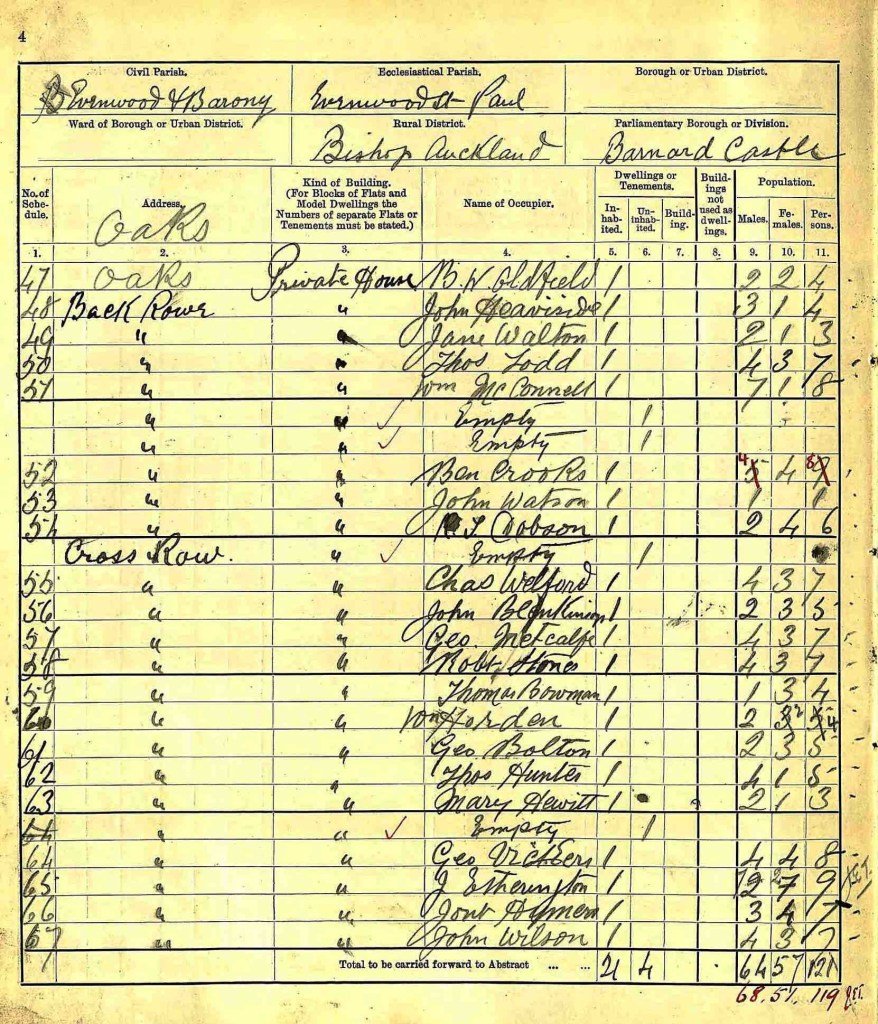 4
Civil Parish. Ecclesiastical Parish. Borough or Urban District.
Evenwood & Barony Evenwood St Paul
Ward of Borough or Urban District. Rural District. Parliamentary Borough or Division.
Bishop Auckland Barnard Castle
No. of Schedule. Address. Kind of Building. (For Blocks of Flats and Model Dwellings the Numbers of separate Flats or Tenements must be stated.) Name of Occupier. Dwellings or Tenements. Inhabited. Uninhabited. Building. Buildings not used as dwellings. Population. Males. Females. Persons.
Oaks
1. 2. 3. 4. 5. 6. 7. 8. 9. 10. 11.
47 Oaks Private House B. W. Oldfield 1 2 2 4
48 Back Rowe " John Heaviside 1 3 1 4
49 " " Jane Walton 1 2 1 3
50 " " Thos Todd 1 4 3 7
51 " " Wm McConnell 1 7 1 8
" " ✓ Empty 1
" " ✓ Empty 1
52 " " Ben Crooks 1 4 4 8
53 " " John Watson 1 1 1
54 " " Dobson 1 2 4 6
Cross Row. " ✓ Empty 1
55 " " Chas Welford 1 4 3 7
56 " " John Blenkinsop 1 2 3 5
57 " " Geo Metcalfe 1 4 3 7
58 " " Robt. Stones 1 4 3 7
59 " " Thomas Bowman 1 1 3 4
60 " " Wm Horden 1 2 2 4
61 " " Geo Bolton 1 2 3 5
62 " " Thos Hunter 1 4 1 5
63 " " Mary Hewitt 1 2 1 3
64 " " ✓ Empty 1
64 " " Geo Vickers 1 4 4 8
65 " " J Etherington 1 2 7 9
66 " " 1 3 4 7
67 " " John Wilson 1 4 3 7
Total to be carried forward to Abstract ... ... 21 4 64 57 121
68. 51. 119